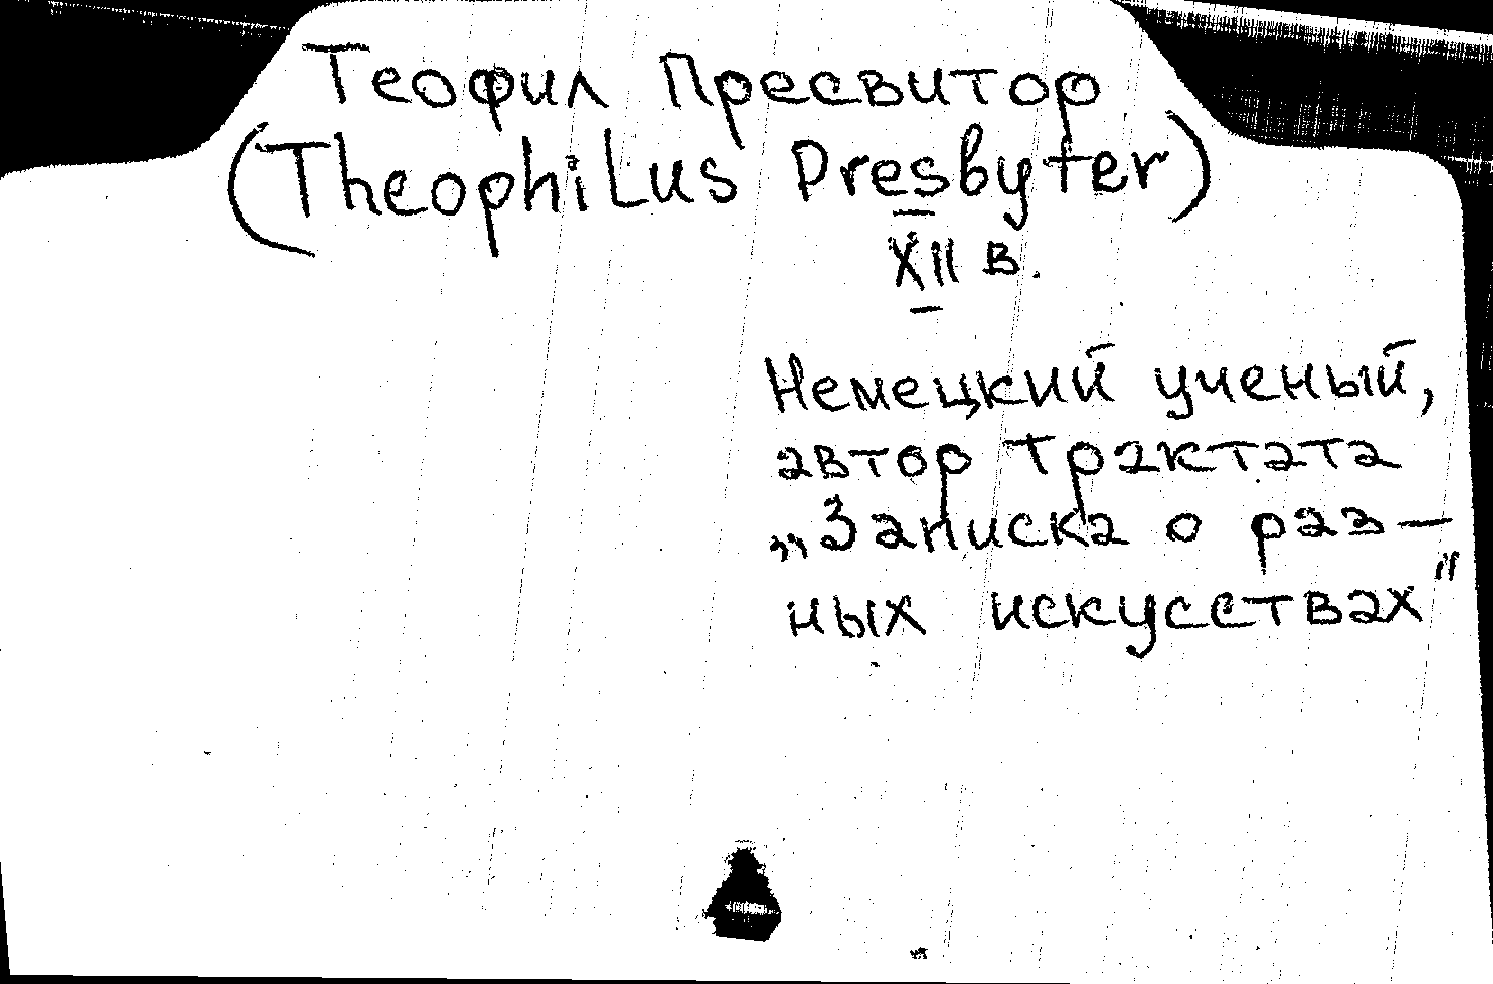 Теофил Пресвитор
(Theophilus Presbyter)
XII в.
Немецкий ученый,
автор трактата
„Записка о раз-
ных искусствах"